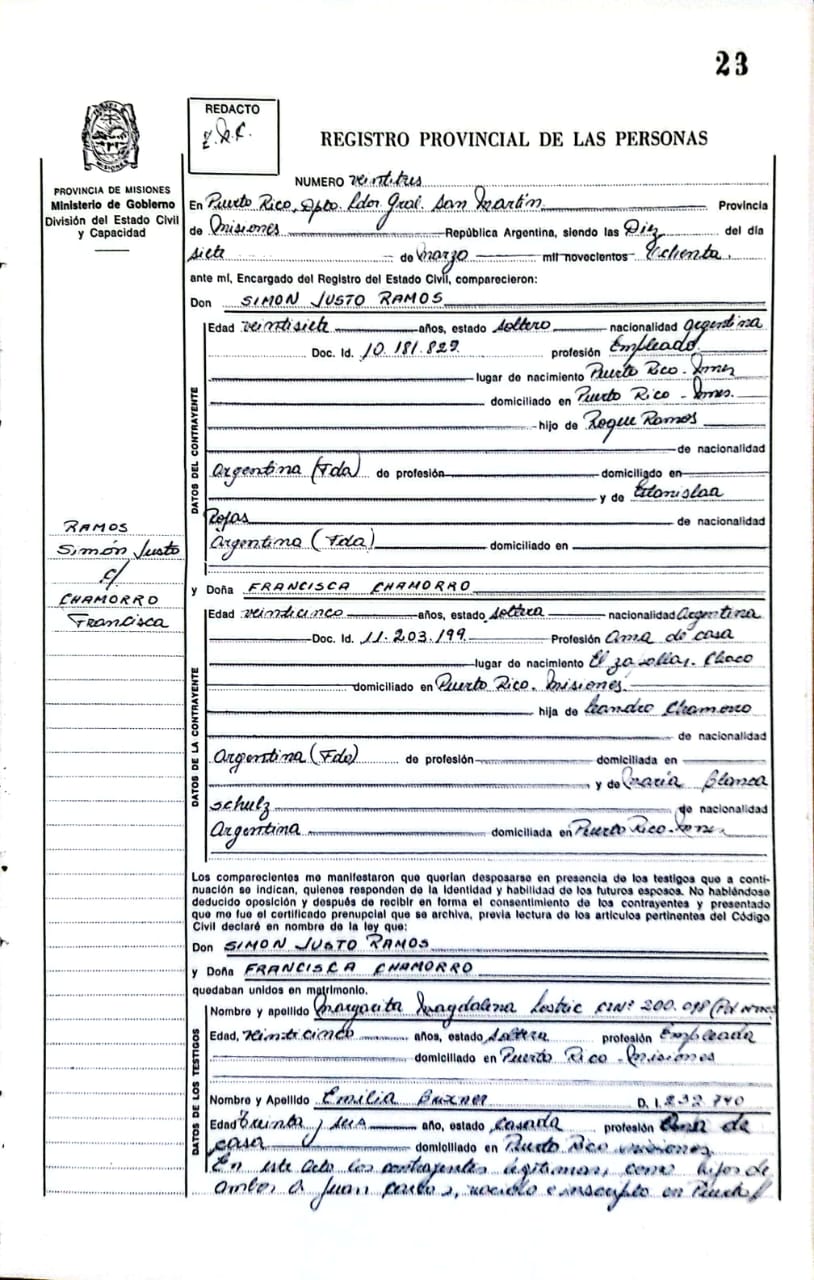 23
REDACTO
REGISTRO PROVINCIAL DE LAS PERSONAS
MISIONES
PROVINCIA DE MISIONES
Ministerio de Gobierno
División del Estado Civil
y Capacidad
NUMERO veintitres
En Puerto Rico, Dpto. Ldor Gral. San Martín Provincia
de Misiones República Argentina, siendo las Diez del día
siete de Marzo mil novecientos Ochenta.
ante mí, Encargado del Registro del Estado Civil, comparecieron:
Don SIMON JUSTO RAMOS
DATOS DEL CONTRAYENTE
Edad veintisiete años, estado soltero nacionalidad argentina
Doc. Id. 10.181.829. profesión Empleado.
lugar de nacimiento Puerto Rico - Mnes
domiciliado en Puerto Rico - Mnes.
hijo de Roque Ramos
de nacionalidad
Argentina (Fda) de profesión domiciliado en
y de Estanislaa
Rojas de nacionalidad
Argentina (Fda) domiciliado en
RAMOS
Simón Justo
c/
CHAMORRO
Francisca
y Doña FRANCISCA CHAMORRO
DATOS DE LA CONTRAYENTE
Edad veinticinco años, estado soltera nacionalidad Argentina
Doc. Id. 11.203.199. Profesión Ama de casa
lugar de nacimiento El Chaco
domiciliado en Puerto Rico. Misiones.
hija de Leandro Chamorro
de nacionalidad
Argentina (Fdo) de profesión domiciliada en
y de María Blanca
Schulz de nacionalidad
Argentina domiciliada en Puerto Rico. Mnes.
Los comparecientes me manifestaron que querían desposarse en presencia de los testigos que a conti-
nuación se indican, quienes responden de la identidad y habilidad de los futuros esposos. No habiéndose
deducido oposición y después de recibir en forma el consentimiento de los contrayentes y presentado
que me fue el certificado prenupcial que se archiva, previa lectura de los artículos pertinentes del Código
Civil declaré en nombre de la ley que:
Don SIMON JUSTO RAMOS
y Doña FRANCISCA CHAMORRO
quedaban unidos en matrimonio.
DATOS DE LOS TESTIGOS
Nombre y apellido Margarita Magdalena CI Nº 200.098 (Pol Mnes)
Edad, veinticinco años, estado soltera profesión Empleada
domiciliado en Puerto Rico - Misiones
Nombre y Apellido Emilia D. I. 232.740
Edad treinta y seis año, estado casada profesión Ama de
casa domiciliado en Puerto Rico Misiones
En este acto los contrayentes legitiman, como hijos de
ambos a Juan Carlos, nacido e inscripto en Puerto